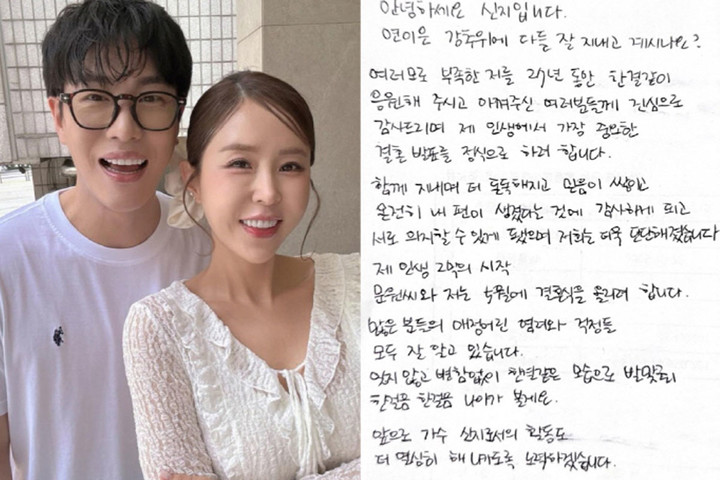 안녕하세요 신지입니다.
연이은 강추위에 다들 잘 지내고 계시나요?
여러모로 부족한 저를 27년 동안 한결같이
응원해 주시고 아껴주신 여러분들께 진심으로
감사드리며 제 인생에서 가장 중요한
결혼 발표를 정식으로 하려 합니다.
함께 지내며 더 돈독해지고 믿음이 쌓이고
온전히 내 편이 생겼다는 것에 감사하게 되고
서로 의지할 수 있게 됐으며 저희는 더욱 단단해졌습니다
제 인생 2막의 시작
문원씨와 저는 5월에 결혼식을 올리려 합니다.
많은 분들의 애정어린 염려와 걱정들
모두 잘 알고 있습니다.
잊지 않고 변함없이 한결같은 모습으로 발맞춰
한걸음 한걸음 나아가 볼게요.
앞으로 가수 신지로서의 활동도
더 열심히 해 나가도록 노력하겠습니다.